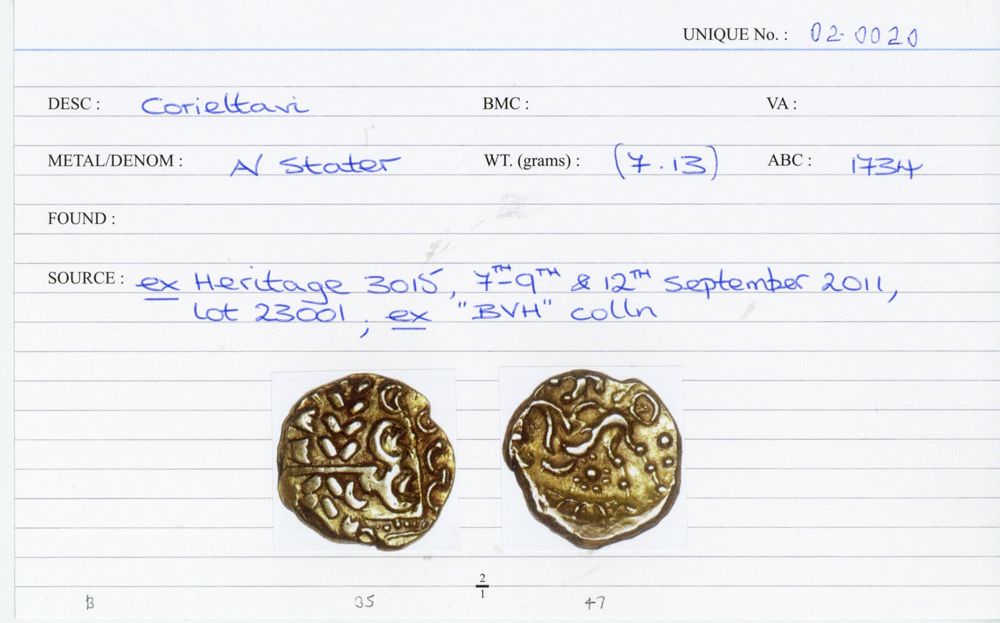 UNIQUE No. : 02-0020
DESC : Corieltavi BMC : VA :
METAL/DENOM : A/ Stater WT. (grams) : (7.13) ABC : 1734
FOUND :
SOURCE : ex Heritage 3015, 7TH-9TH & 12TH September 2011,
lot 23001; ex "BVH" colln
2
1
B 35 47